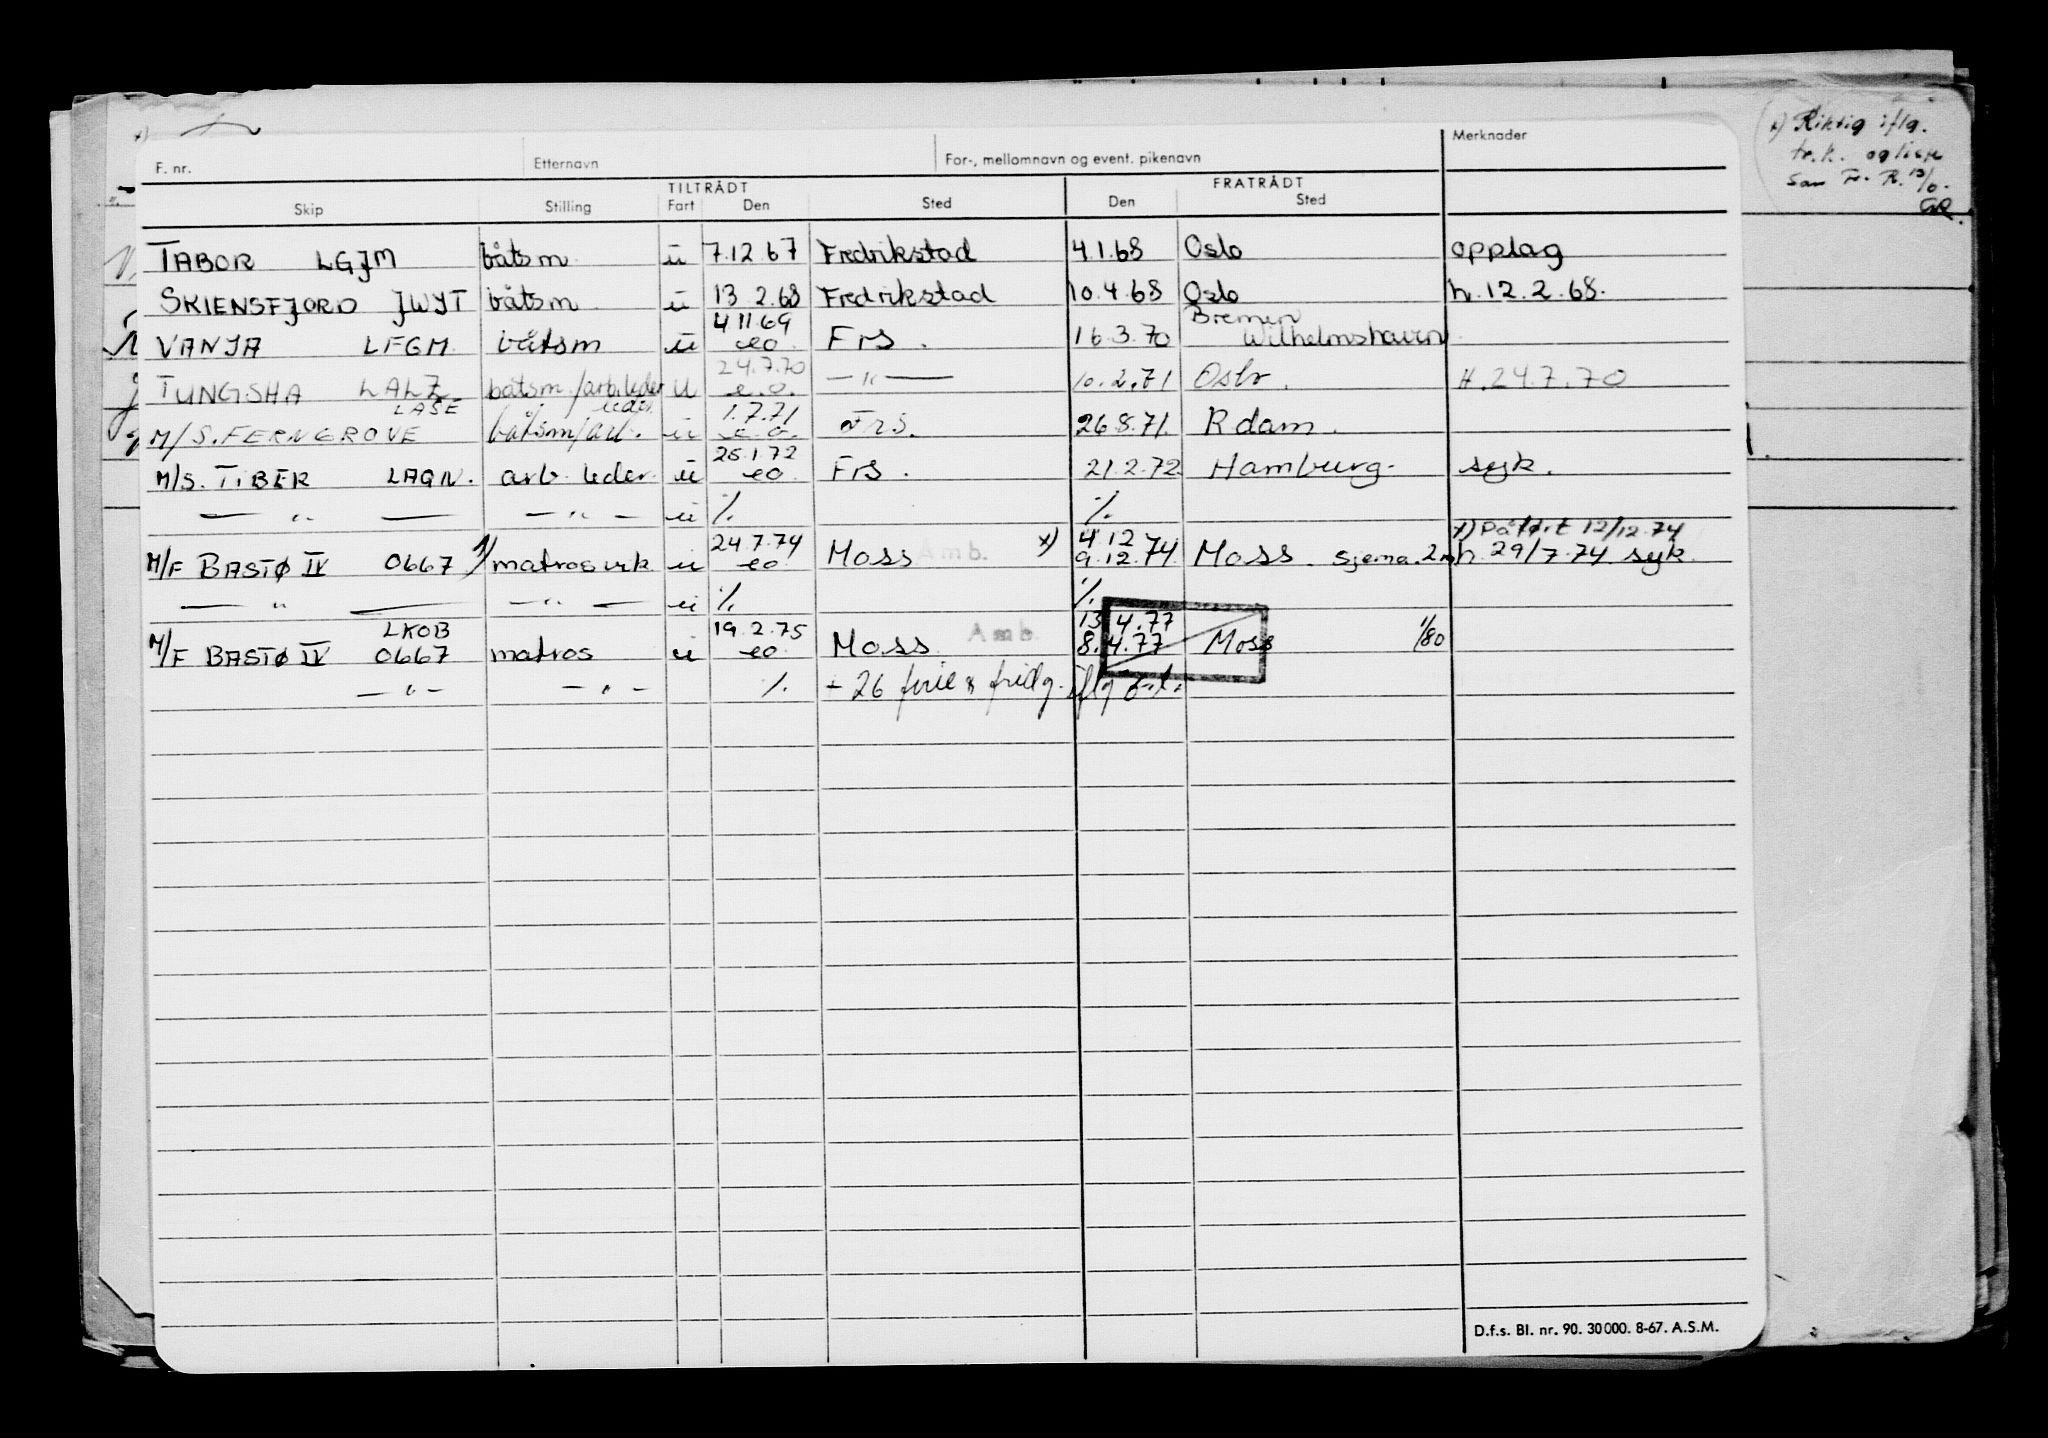 Merknader
F. nr. Etternavn For-, mellomnavn og event. pikenavn
TILTRÅDT FRATRÅDT
Skip Stilling Fart Den Sted Den Sted
x) Riktig iflg.
TABOR LGJM båtsm u 7.12.67 Fredrikstad 4.1.68 Oslo opplag
SKIENSFJORD JWYT båtsm u 13.2.68 Fredrikstad 10.4.68 Oslo h. 12.2.68.
4.11.69 Bremen
VANJA LFGM båtsm u eo. Frs. 16.3.70 Wilhelmshavn
24.7.70
TUNGSHA LALZ båtsm./arb.leder u e.o. — " — 10.2.71 Oslo. H. 24.7.70
LASE leder 1.7.71
M/S. FERNGROVE båtsm/arb. u e.o. Frs. 26.8.71. Rdam.
25.1.72
M/S. TIBER LAGN. arb. leder. u eo. Frs. 21.2.72. Hamburg. syk.
— " — — " — u %. %.
24.7.74 4.12 x) Påført 12/12.74
M/F BASTØ IV 0667 x) matrosvik u eo. Moss Amb. x) 9.12.74. Moss. Sjema. 2 m h. 29/7.74. syk.
— " — — " — u %. %.
LKOB 19.2.75 13.4.77
M/F BASTØ IV 0667 matros u eo. Moss. Amb. 8.4.77 Moss 1/80
— " — — " — %. + 26 ferie & fridg. iflg
D.f.s. Bl. nr. 90. 30 000. 8-67. A.S.M.